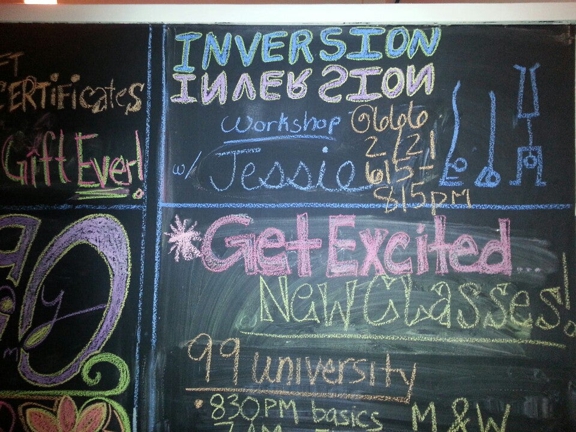 CERTiFiCAtES
Gift Ever!
INVERSION
INVERSION
Workshop
w/ Jessie
2/21
815pm
*Get Excited...
New Classes!
99 university
• 830PM basics M & W
7 AM